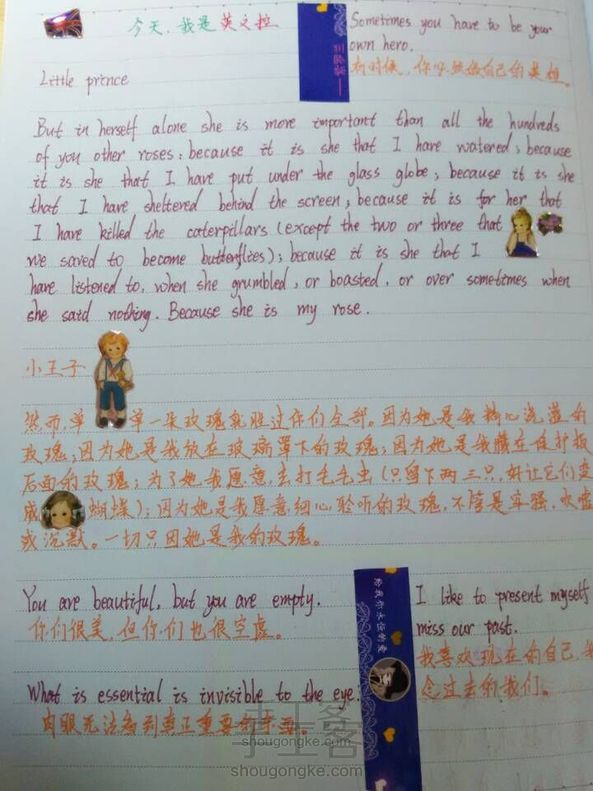 今天,我是英文控
Sometimes you have to be your
own hero.
有时候,你必须做自己的英雄。
Little prince
But in herself alone she is more important than all the hundreds
of you other roses: because it is she that I have watered; because
it is she that I have put under the glass globe; because it is she
that I have sheltered behind the screen; because it is for her that
I have killed the caterpillars (except the two or three that
we saved to become butterflies); because it is she that I
have listened to, when she grumbled, or boasted, or over sometimes when
she said nothing. Because she is my rose.
小王子
然而,单单一朵玫瑰就胜过你们全部。因为她是我精心浇灌的
玫瑰;因为她是我放在玻璃罩下的玫瑰;因为她是我藏在保护板
后面的玫瑰;为了她我愿意去打毛毛虫(只留下两三只,好让它们变
成蝴蝶);因为她是我愿意细心聆听的玫瑰,不管是牢骚,吹嘘
或沉默。一切只因她是我的玫瑰。
You are beautiful, but you are empty.
你们很美,但你们也很空虚。
What is essential is invisible to the eye.
肉眼无法看到真正重要的东西。
给我你永恒的爱
I like to present myself
miss our past.
我喜欢现在的自己,我
念过去的我们。
手工客
shougongke.com
shougongke.com